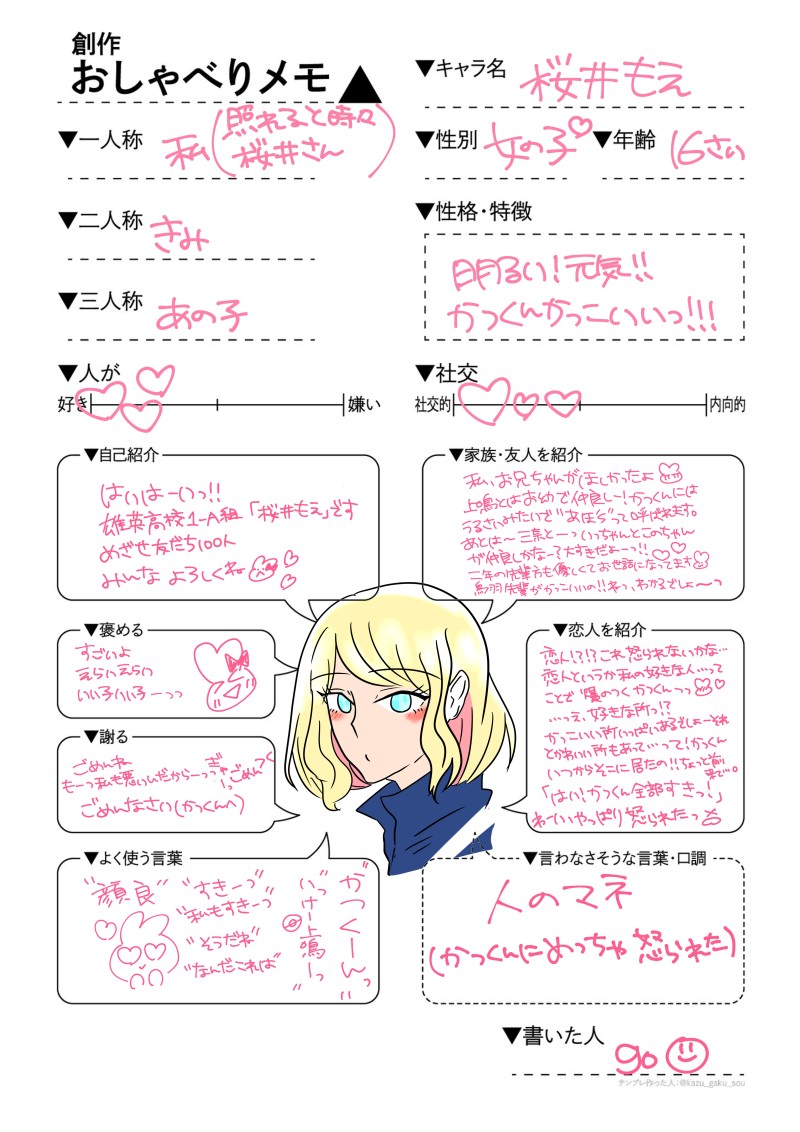 創作
おしゃべりメモ▲
▼キャラ名 桜井もえ
▼一人称 私(照れると時々
桜井さん)
▼性別 女の子♡ ▼年齢 16さい
▼二人称 きみ
▼三人称 あの子
▼性格・特徴
明るい!元気!!
かっくんかっこいいっ!!!
▼人が
好き 嫌い
▼社交
社交的 内向的
▼自己紹介
はいはーいっ!!
雄英高校1-A組「桜井もえ」です
めざせ友だち100人
みんな よろしくね
▼家族・友人を紹介
私、お兄ちゃんがほしかったよ
上鳴とはおめで仲良しー!かっくんには
うるさいみたいで"あほら"って呼ばれます。
あとは〜三奈とーっいっちゃんとこのちゃん
が仲良しかなーっ大すきだよーっ!!♡♡
二年の先輩方も優しくてお世話になってます
鳥羽先輩がかっこいいの!!ねっ、わかるでしょ〜っ
▼褒める
すごいよ
えらいえらい
いい子いい子ーっっ
▼恋人を紹介
恋人!?!?これ怒られないかな…
恋人というか私の好きな人…って
ことで爆のつくかっくんっっ
…っえ、好きな所っ!?
かっこいい所いっぱいあるでしょーそれ
とかわいい所もあって…って!かっくん
いつからそこに居たの!!ちょっと前
来て。
「はい!かっくん全部すきっ!」
わーいやっぱり怒られたっ
▼謝る
ごめんね
もーっ私も悪いんだからーっっ
ぎゅーってごめんっ
ごめんなさい(かっくんへ)
▼よく使う言葉
"顔良"
"すきーっ"
"私もすきーっ"
"そうだね"
"なんだこれは"
いっけー上鳴ーっ"
"かっくーんっ"
▼言わなさそうな言葉・口調
人のマネ
(かっくんにめっちゃ怒られた)
▼書いた人 go
テンプレ作った人:@kazu_gaku_sou